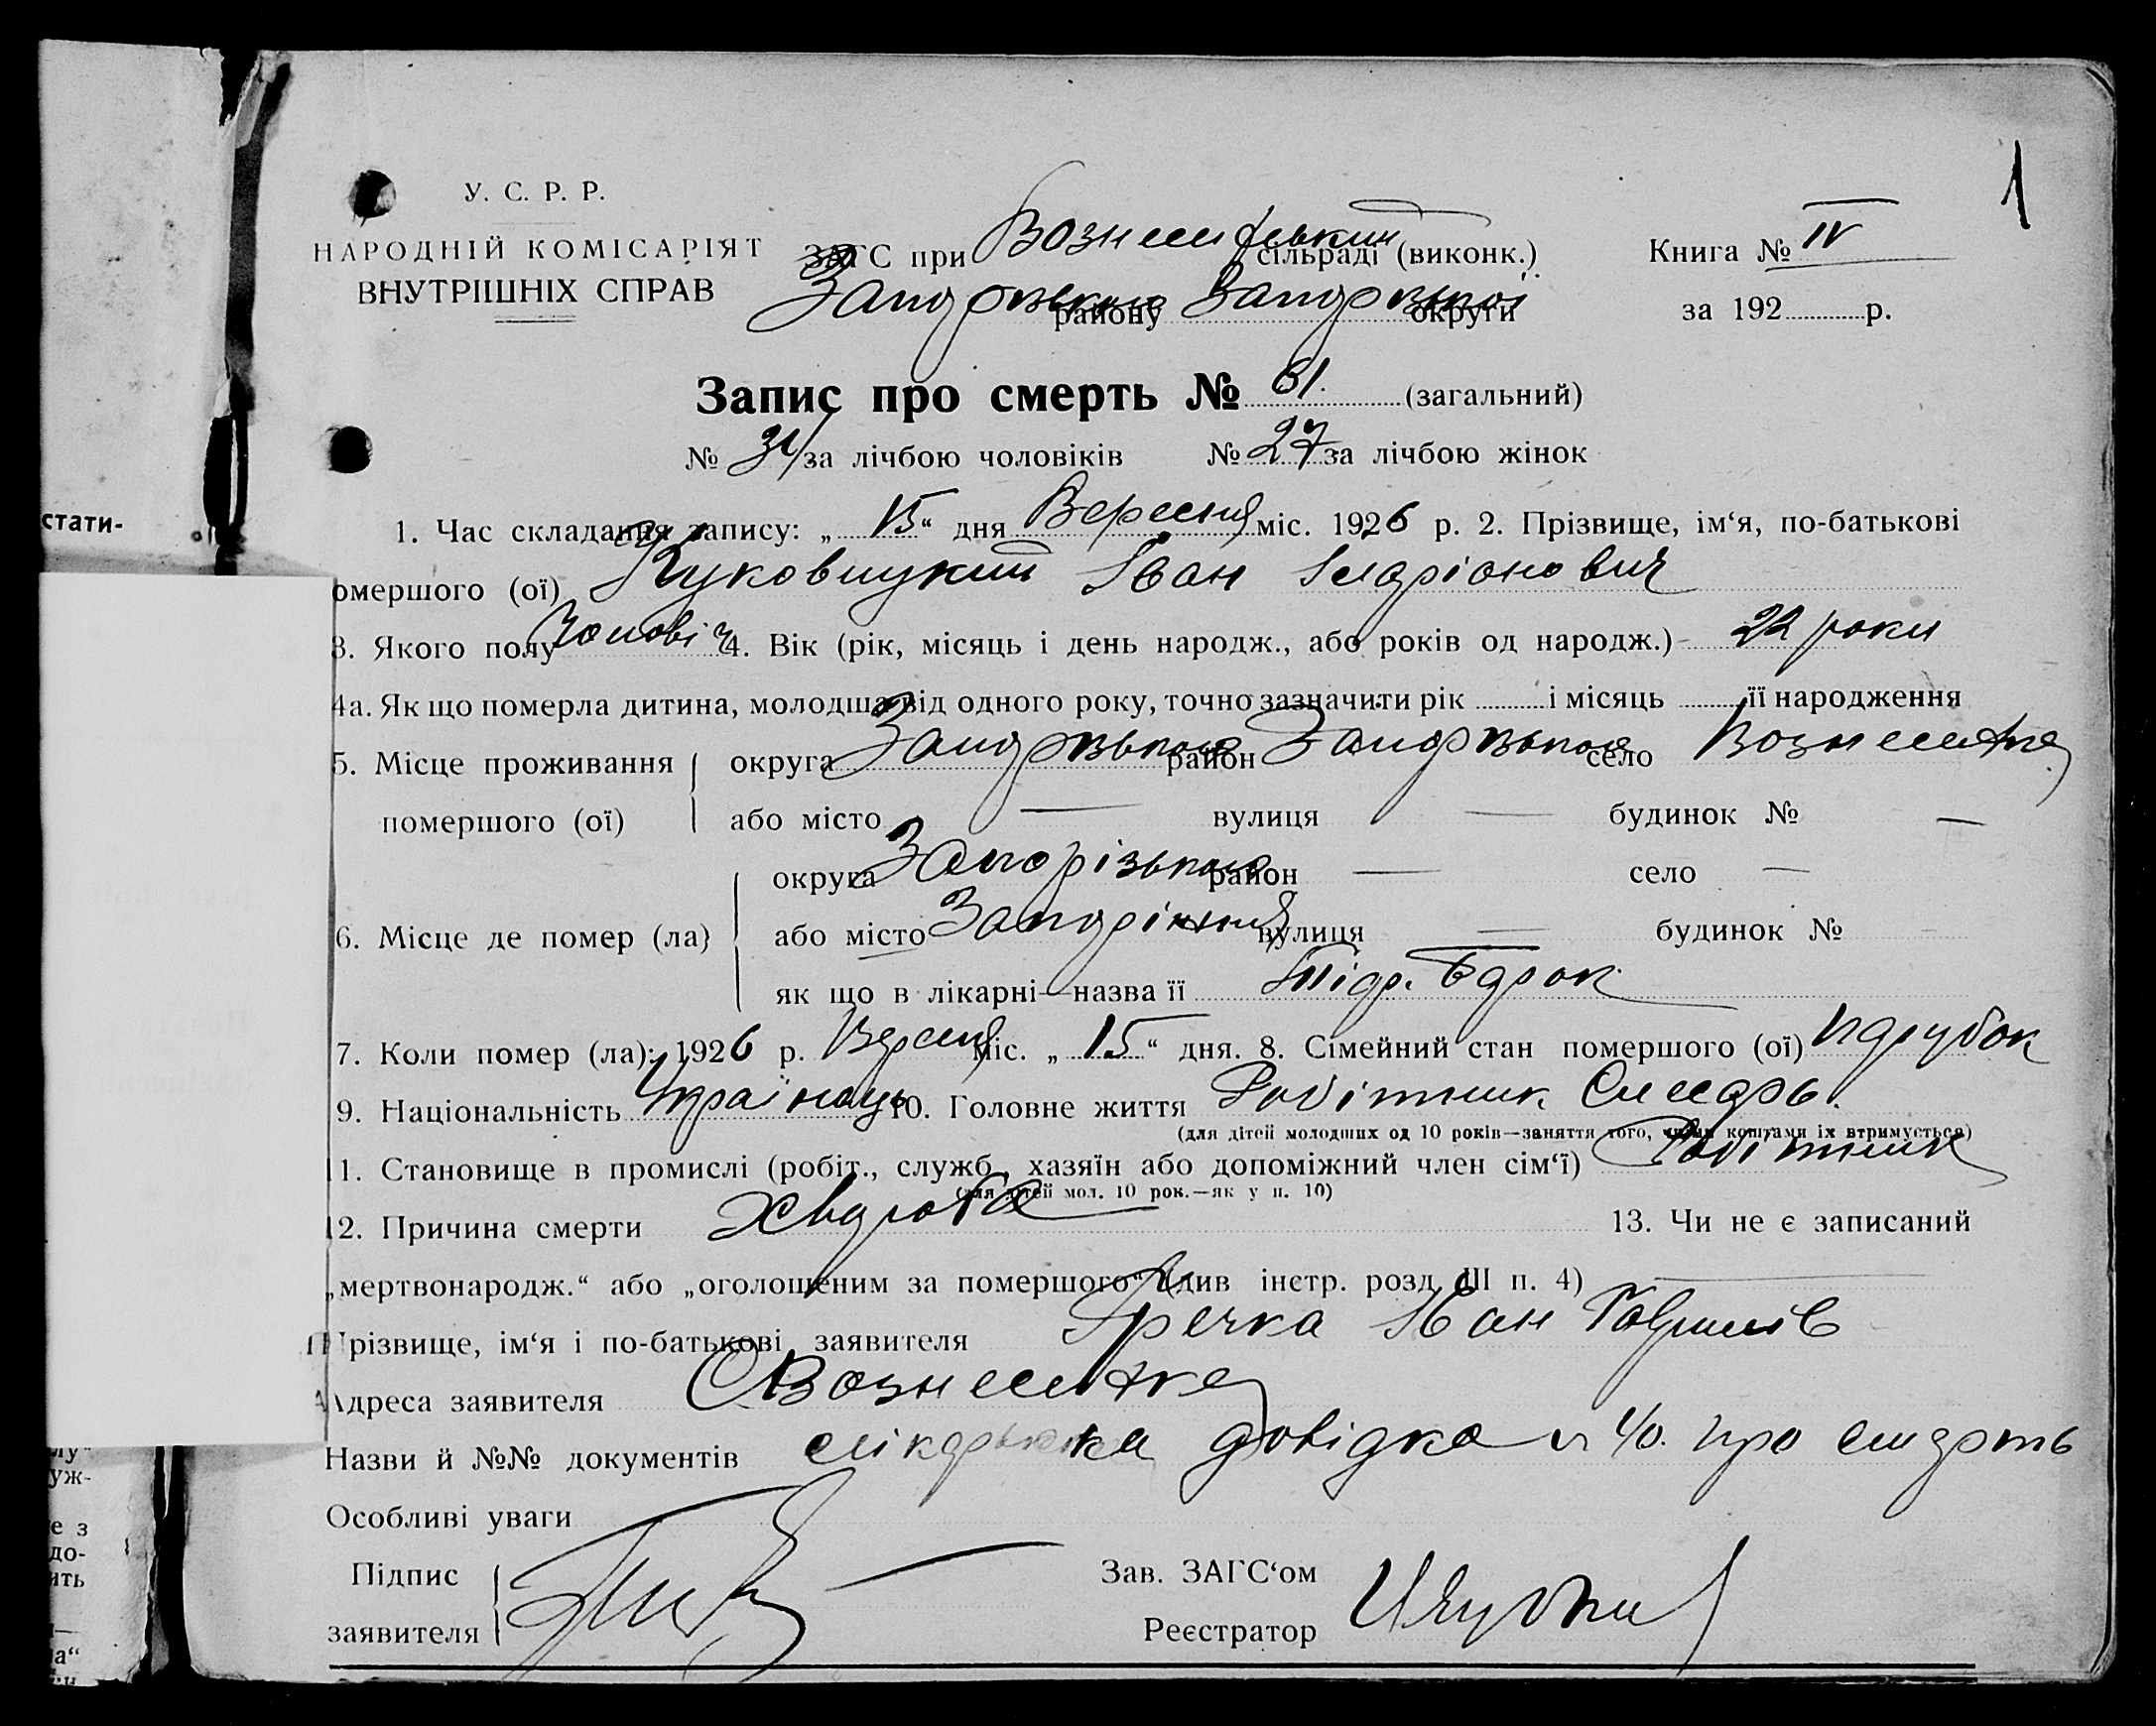 1
У. С. Р. Р.
НАРОДНІЙ КОМІСАРІЯТ
ВНУТРІШНІХ СПРАВ
ЗАГС при Вознесенський сільраді (виконк.)
Запорізького району Запорізької округи
Книга № IV
за 192 р.
Запис про смерть № 61. (загальний)
№ 34 за лічбою чоловіків № 27 за лічбою жінок
1. Час складання запису: „15“ дня Вересня міс. 1926 р. 2. Прізвище, ім‘я, по-батькові
омершого (ої) Іван Іларіонович
3. Якого полу Чоловіч 4. Вік (рік, місяць і день народж., або років од народж.) 22 роки
4а. Як що померла дитина, молодша від одного року, точно зазначити рік і місяць її народження
5. Місце проживання округа Запорізькая район Запорізькая село Вознесенка
помершого (ої) або місто — вулиця — будинок № —
округа Запорізькая район — село —
6. Місце де помер (ла) або місто Запоріжжя вулиця — будинок №
як що в лікарні—назва її
7. Коли помер (ла): 1926 р. Вересня міс. „15“ дня. 8. Сімейний стан помершого (ої) парубок
9. Національність Українець 10. Головне життя Робітник Слесарь.
(для дітей молодших од 10 років—заняття того, чиїми коштами їх втримується)
11. Становище в промислі (робіт., служб., хазяїн або допоміжний член сім‘ї) Робітник
(для дітей мол. 10 рок.—як у п. 10)
12. Причина смерти Хвороба 13. Чи не є записаний
„мертвонародж.“ або „оголошеним за помершого“ (див інстр. розд. III п. 4) —
Прізвище, ім‘я і по-батькові заявителя Гречка Іван Гаврилів
Адреса заявителя С Вознесенка
Назви й №№ документів лікарська довідка про смерть
Особливі уваги
Підпис
заявителя
Зав. ЗАГС‘ом
Реєстратор
стати-
лу“
уж-
е з
до-
ить
а“